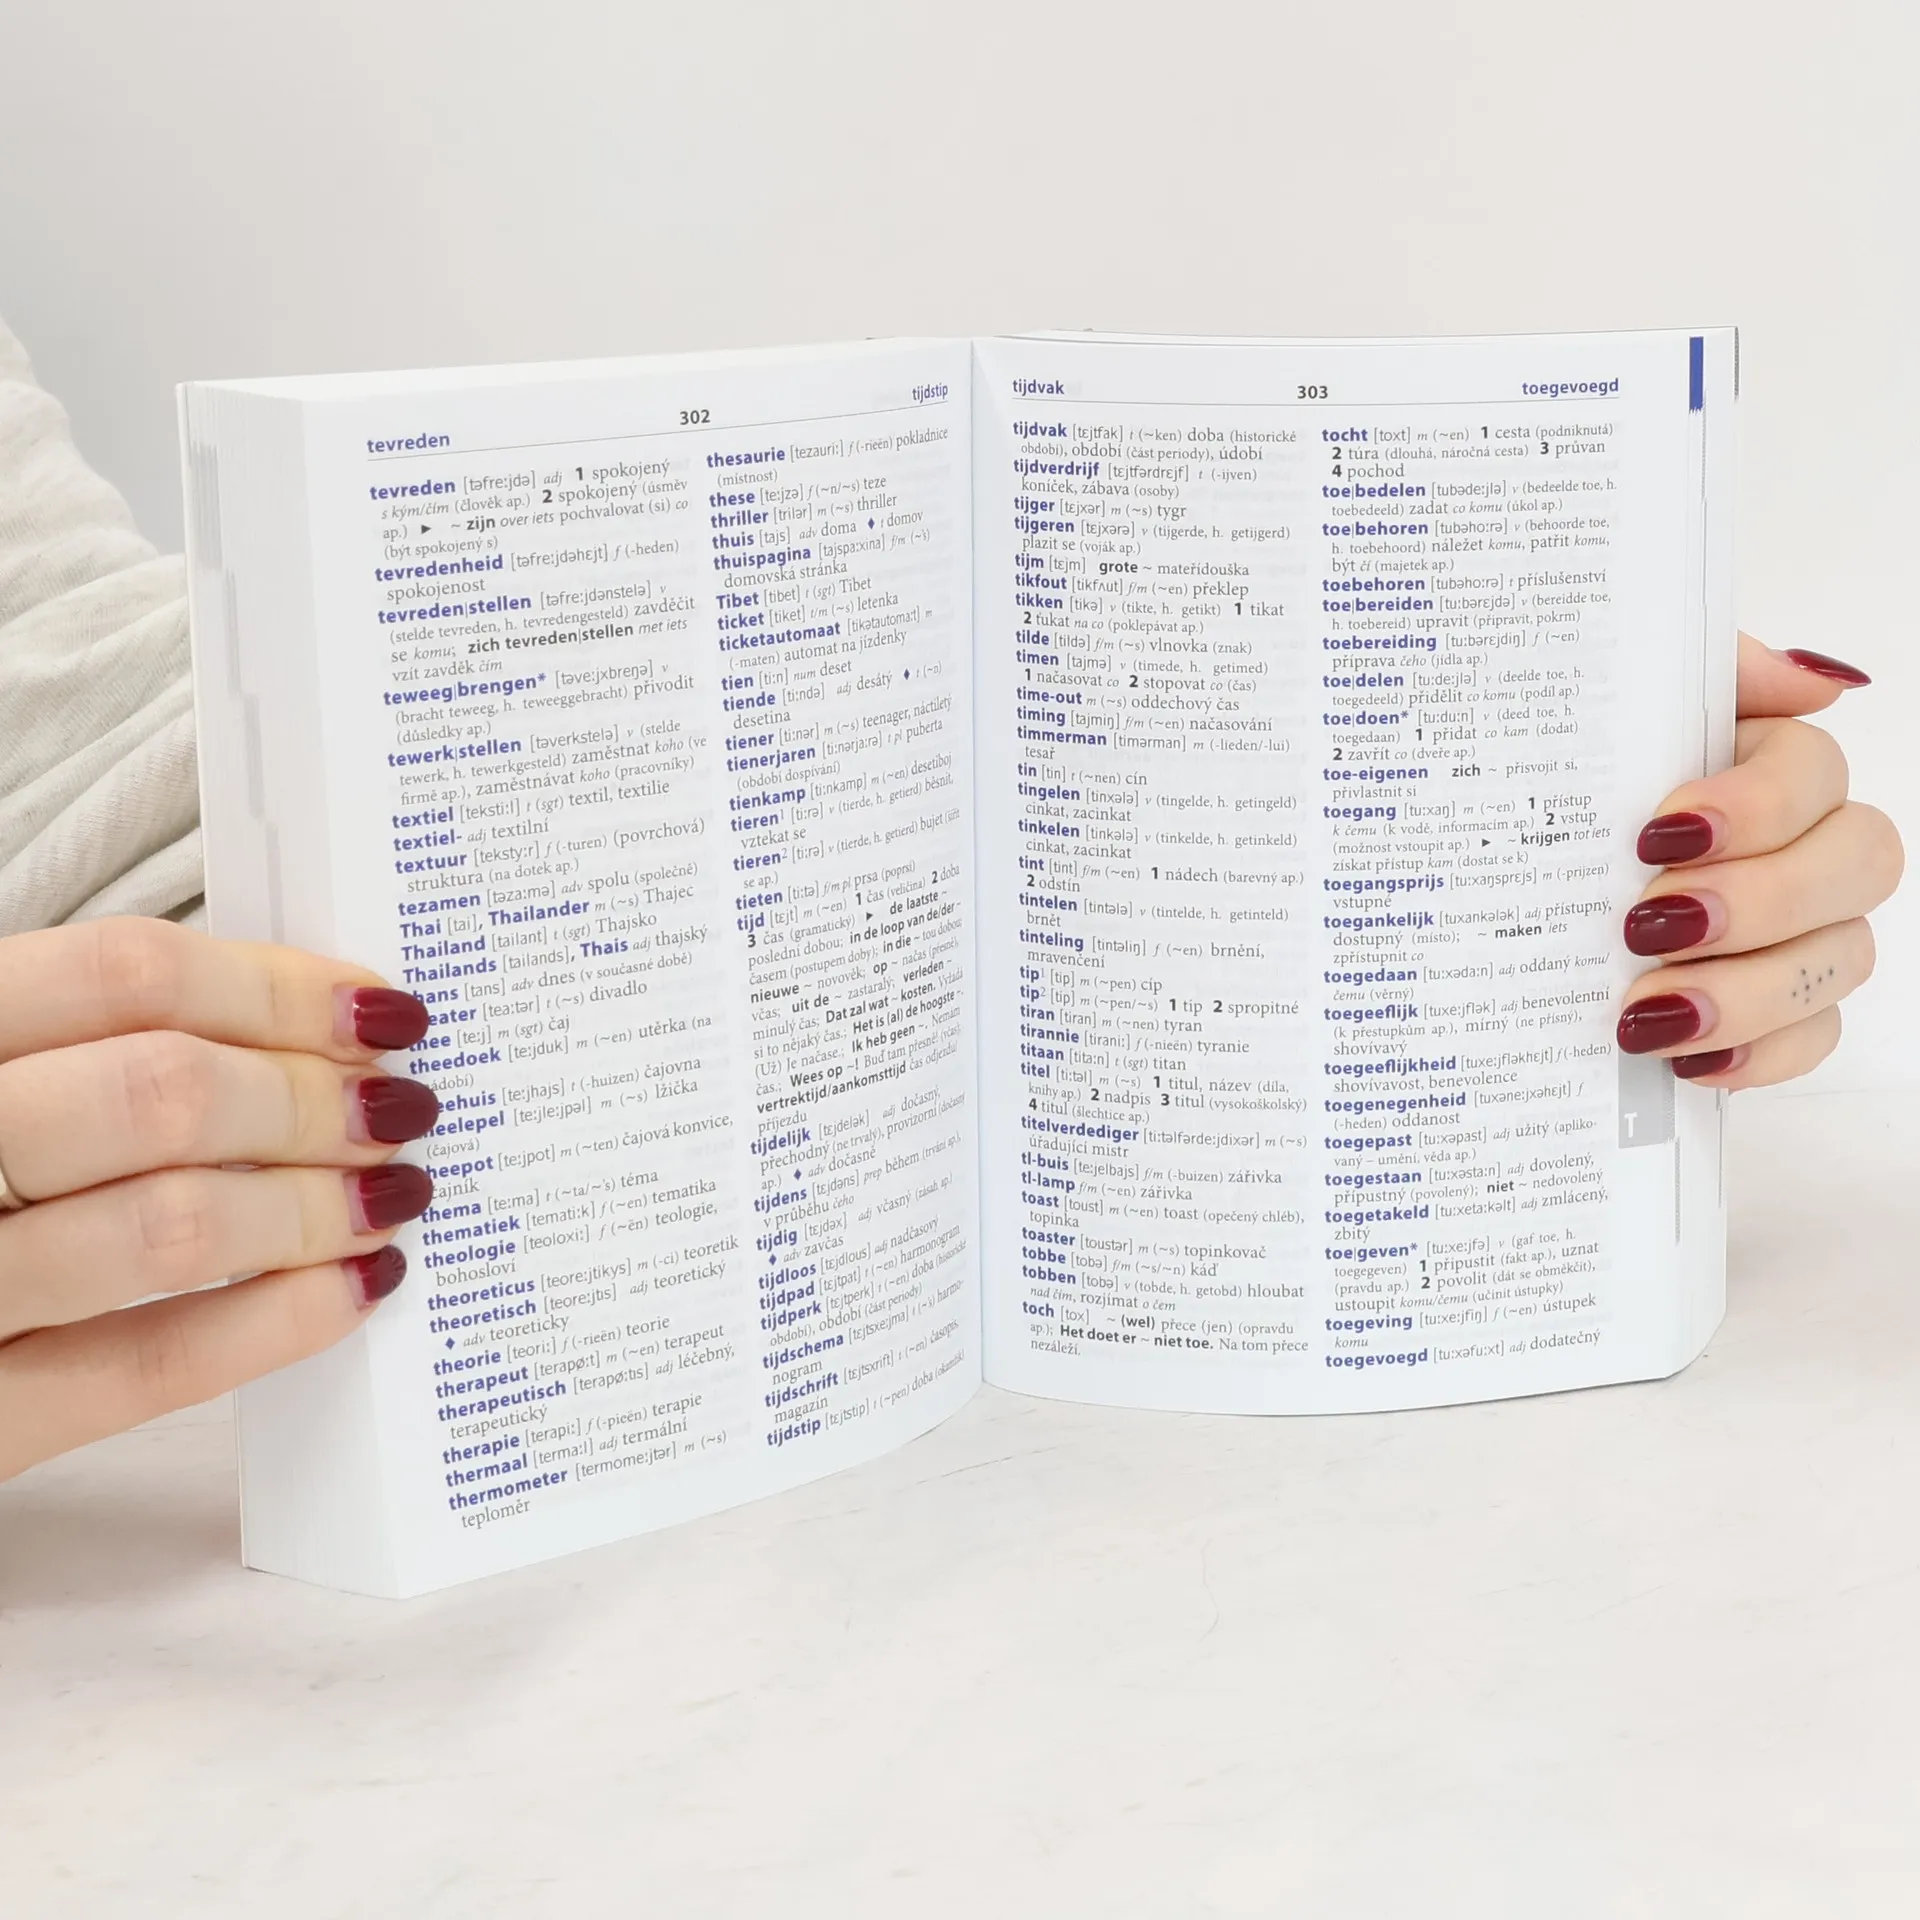 tevreden 302 tijdstip
tevreden [təfre:jdə] adj 1 spokojený
s kým/čím (člověk ap.) 2 spokojený (úsměv
ap.) ► ~ zijn over iets pochvalovat (si) co
(být spokojený s)
tevredenheid [təfre:jdəhɛjt] f (-heden)
spokojenost
tevreden|stellen [təfre:jdənstelə] v
(stelde tevreden, h. tevredengesteld) zavděčit
se komu; zich tevreden|stellen met iets
vzít zavděk čím
teweeg|brengen* [təve:jxbreŋə] v
(bracht teweeg, h. teweeggebracht) přivodit
(důsledky ap.)
tewerk|stellen [təverkstelə] v (stelde
tewerk, h. tewerkgesteld) zaměstnat koho (ve
firmě ap.), zaměstnávat koho (pracovníky)
textiel [teksti:l] t (sgt) textil, textilie
textiel- adj textilní
textuur [teksty:r] f (-turen) (povrchová)
struktura (na dotek ap.)
tezamen [təza:mə] adv spolu (společně)
Thai [tai], Thailander m (~s) Thajec
Thailand [tailant] t (sgt) Thajsko
Thailands [tailands], Thais adj thajský
hans [tans] adv dnes (v současné době)
eater [tea:tər] t (~s) divadlo
thee [te:j] m (sgt) čaj
theedoek [te:jduk] m (~en) utěrka (na
nádobí)
eehuis [te:jhajs] t (-huizen) čajovna
heelepel [te:jle:jpəl] m (~s) lžička
(čajová)
heepot [te:jpot] m (~ten) čajová konvice,
čajník
thema [te:ma] t (~ta/~'s) téma
thematiek [temati:k] f (~en) tematika
theologie [teoloxi:] f (~ën) teologie,
bohosloví
theoreticus [teore:jtikys] m (-ci) teoretik
theoretisch [teore:jtɪs] adj teoretický
♦ adv teoreticky
theorie [teori:] f (-rieën) teorie
therapeut [terapø:t] m (~en) terapeut
therapeutisch [terapø:tɪs] adj léčebný,
terapeutický
therapie [terapi:] f (-pieën) terapie
thermaal [terma:l] adj termální
thermometer [termome:jtər] m (~s)
teploměr
thesaurie [tezauri:] f (-rieën) pokladnice
(místnost)
these [te:jzə] f (~n/~s) teze
thriller [trilər] m (~s) thriller
thuis [tajs] adv doma ♦ t domov
thuispagina [tajspa:xina] f/m (~'s)
domovská stránka
Tibet [tibet] t (sgt) Tibet
ticket [tiket] t/m (~s) letenka
ticketautomaat [tikətautoma:t] m
(-maten) automat na jízdenky
tien [ti:n] num deset
tiende [ti:ndə] adj desátý ♦ t (~n)
desetina
tiener [ti:nər] m (~s) teenager, náctiletý
tienerjaren [ti:nərja:rə] t pl puberta
(období dospívání)
tienkamp [ti:nkamp] m (~en) desetiboj
tieren¹ [ti:rə] v (tierde, h. getierd) běsnit,
vztekat se
tieren² [ti:rə] v (tierde, h. getierd) bujet (šířit
se ap.)
tieten [ti:tə] f/m pl prsa (poprsí)
tijd [tɛjt] m (~en) 1 čas (veličina) 2 doba
3 čas (gramatický) ► de laatste ~
poslední dobou; in de loop van de/der ~
časem (postupem doby); in die ~ tou dobou;
nieuwe ~ novověk; op ~ načas (přesně),
včas; uit de ~ zastaralý; verleden ~
minulý čas; Dat zal wat ~ kosten. Vyžádá
si to nějaký čas.; Het is (al) de hoogste ~.
(Už) Je načase.; Ik heb geen ~. Nemám
čas.; Wees op ~! Buď tam přesně! (včas);
vertrektijd/aankomsttijd čas odjezdu/
příjezdu
tijdelijk [tɛjdelək] adj dočasný,
přechodný (ne trvalý), provizorní (dočasný
ap.) ♦ adv dočasně
tijdens [tɛjdəns] prep během (trvání ap.),
v průběhu čeho
tijdig [tɛjdəx] adj včasný (zásah ap.)
♦ adv zavčas
tijdloos [tɛjdlous] adj nadčasový
tijdpad [tɛjtpat] t (~en) harmonogram
tijdperk [tɛjtperk] t (~en) doba (historické
období), období (část periody)
tijdschema [tɛjtsxe:jma] t (~'s) harmo-
nogram
tijdschrift [tɛjtsxrift] t (~en) časopis,
magazín
tijdstip [tɛjtstip] t (~pen) doba (okamžik)
tijdvak 303 toegevoegd
tijdvak [tɛjtfak] t (~ken) doba (historické
období), období (část periody), údobí
tijdverdrijf [tɛjtfərdrɛjf] t (-ijven)
koníček, zábava (osoby)
tijger [tɛjxər] m (~s) tygr
tijgeren [tɛjxərə] v (tijgerde, h. getijgerd)
plazit se (voják ap.)
tijm [tɛjm] grote ~ mateřídouška
tikfout [tikfʌut] f/m (~en) překlep
tikken [tikə] v (tikte, h. getikt) 1 tikat
2 ťukat na co (poklepávat ap.)
tilde [tildə] f/m (~s) vlnovka (znak)
timen [tajmə] v (timede, h. getimed)
1 načasovat co 2 stopovat co (čas)
time-out m (~s) oddechový čas
timing [tajmiŋ] f/m (~en) načasování
timmerman [timərman] m (-lieden/-lui)
tesař
tin [tin] t (~nen) cín
tingelen [tinxələ] v (tingelde, h. getingeld)
cinkat, zacinkat
tinkelen [tinkələ] v (tinkelde, h. getinkeld)
cinkat, zacinkat
tint [tint] f/m (~en) 1 nádech (barevný ap.)
2 odstín
tintelen [tintələ] v (tintelde, h. getinteld)
brnět
tinteling [tintəliŋ] f (~en) brnění,
mravenčení
tip¹ [tip] m (~pen) cíp
tip² [tip] m (~pen/~s) 1 tip 2 spropitné
tiran [tiran] m (~nen) tyran
tirannie [tirani:] f (-nieën) tyranie
titaan [tita:n] t (sgt) titan
titel [ti:təl] m (~s) 1 titul, název (díla,
knihy ap.) 2 nadpis 3 titul (vysokoškolský)
4 titul (šlechtice ap.)
titelverdediger [ti:təlfərde:jdixər] m (~s)
úřadující mistr
tl-buis [te:jelbajs] f/m (-buizen) zářivka
tl-lamp f/m (~en) zářivka
toast [toust] m (~en) toast (opečený chléb),
topinka
toaster [toustər] m (~s) topinkovač
tobbe [tobə] f/m (~s/~n) káď
tobben [tobə] v (tobde, h. getobd) hloubat
nad čím, rozjímat o čem
toch [tox] ~ (wel) přece (jen) (opravdu
ap.); Het doet er ~ niet toe. Na tom přece
nezáleží.
tocht [toxt] m (~en) 1 cesta (podniknutá)
2 túra (dlouhá, náročná cesta) 3 průvan
4 pochod
toe|bedelen [tubəde:jlə] v (bedeelde toe, h.
toebedeeld) zadat co komu (úkol ap.)
toe|behoren [tubəho:rə] v (behoorde toe,
h. toebehoord) náležet komu, patřit komu,
být čí (majetek ap.)
toebehoren [tubəho:rə] t příslušenství
toe|bereiden [tu:bərɛjdə] v (bereidde toe,
h. toebereid) upravit (připravit, pokrm)
toebereiding [tu:bərɛjdiŋ] f (~en)
příprava čeho (jídla ap.)
toe|delen [tu:de:jlə] v (deelde toe, h.
toegedeeld) přidělit co komu (podíl ap.)
toe|doen* [tu:du:n] v (deed toe, h.
toegedaan) 1 přidat co kam (dodat)
2 zavřít co (dveře ap.)
toe-eigenen zich ~ přisvojit si,
přivlastnit si
toegang [tu:xaŋ] m (~en) 1 přístup
k čemu (k vodě, informacím ap.) 2 vstup
(možnost vstoupit ap.) ► ~ krijgen tot iets
získat přístup kam (dostat se k)
toegangsprijs [tu:xaŋsprɛjs] m (-prijzen)
vstupné
toegankelijk [tuxankələk] adj přístupný,
dostupný (místo); ~ maken iets
zpřístupnit co
toegedaan [tu:xəda:n] adj oddaný komu/
čemu (věrný)
toegeeflijk [tuxe:jflək] adj benevolentní
(k přestupkům ap.), mírný (ne přísný),
shovívavý
toegeeflijkheid [tuxe:jfləkhɛjt] f (-heden)
shovívavost, benevolence
toegenegenheid [tuxəne:jxəhɛjt] f
(-heden) oddanost
toegepast [tu:xəpast] adj užitý (apliko-
vaný – umění, věda ap.)
toegestaan [tu:xəsta:n] adj dovolený,
přípustný (povolený); niet ~ nedovolený
toegetakeld [tu:xəta:kəlt] adj zmlácený,
zbitý
toe|geven* [tu:xe:jfə] v (gaf toe, h.
toegegeven) 1 připustit (fakt ap.), uznat
(pravdu ap.) 2 povolit (dát se obměkčit),
ustoupit komu/čemu (učinit ústupky)
toegeving [tu:xe:jfiŋ] f (~en) ústupek
komu
toegevoegd [tu:xəfu:xt] adj dodatečný
T